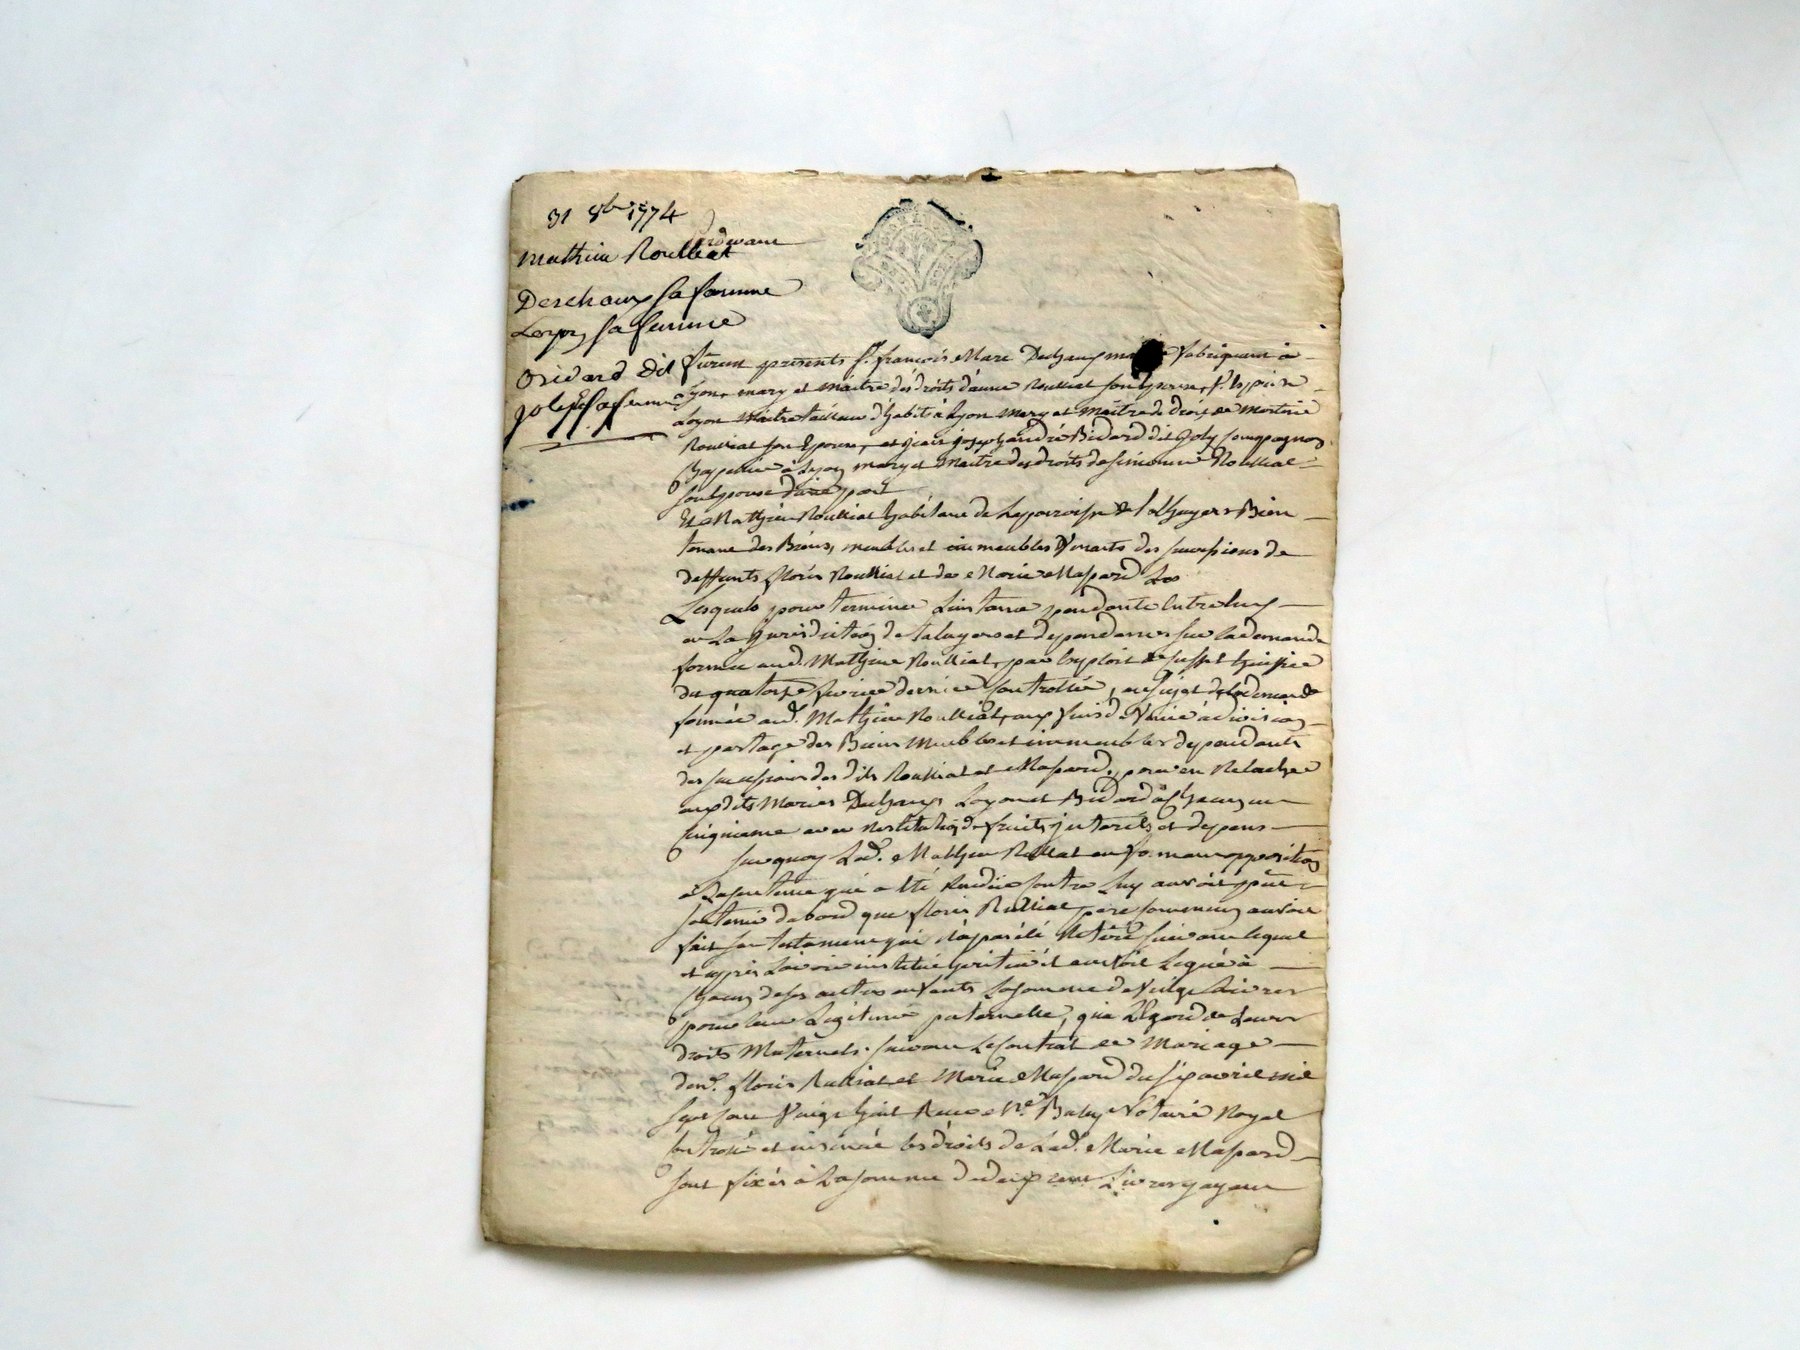 31 8bre 1774
Mathieu Roulliat
Deschamp sa femme
Loyon sa femme
Bidard dit
Joly sa femme
Furent présents Sr. françois Marc Dechamp fabriquant à
Lyon mary et maitre des droits danne Roulliat son Epouse, Sr.
Loyon Maitre tailleur d'habit à Lyon mary et maitre de droits de
Roulliat son Epouse, et jean joseph andré Bidard dit Joly Compagnon
à Lyon mary et maitre des droits de simonne Roulliat
son Epouse d'une part
Et Mathieu Roulliat habitant de La paroisse de Bien
tenant des Biens, meubles et immeubles Venants des successions de
deffunts floris Roulliat et de Marie Masard
Lesquels pour terminer Linstance pendante Entre Eux
en La jurisdiction de talluyers et dependances sur la demande
formée aud. Mathieu Roulliat, par Exploit de huissier
du quatorze fevrier dernier Controllé, au sujet de la demande
formée aud. Mathieu Roulliat, aux fins de Venir à division
et partage des Biens Meubles et immeubles dependants
des successions des dits Roulliat et Masard, pour en Relacher
aux dits Mariés Dechamps Loyon et Bidard à Chacun un
Cinquieme avec Restitution de fruits jnterets et depens
sur quoy Led. Mathieu Roulliat en formant opposition
à La sentence qui a Eté Rendüe Contre Luy auroit
soutenu dabord que floris Roulliat père Commun auroit
fait son testament qui
et après Lavoir institué heritier il auroit Legué à
Chacun de ses autres enfants La somme de Vingt Livres
pour leur Legitime paternelle, qu'a L'Egard de Leurs
droits Maternels suivant Le Contrat de Mariage
dud. floris Roulliat et Marie Masard du six avril mil
sept cent Vingt huit Recu Me Notaire Royal
Controlé et insinué les droits de Lad. Marie Masard
sont fixés à La somme de deux cent Livres payant